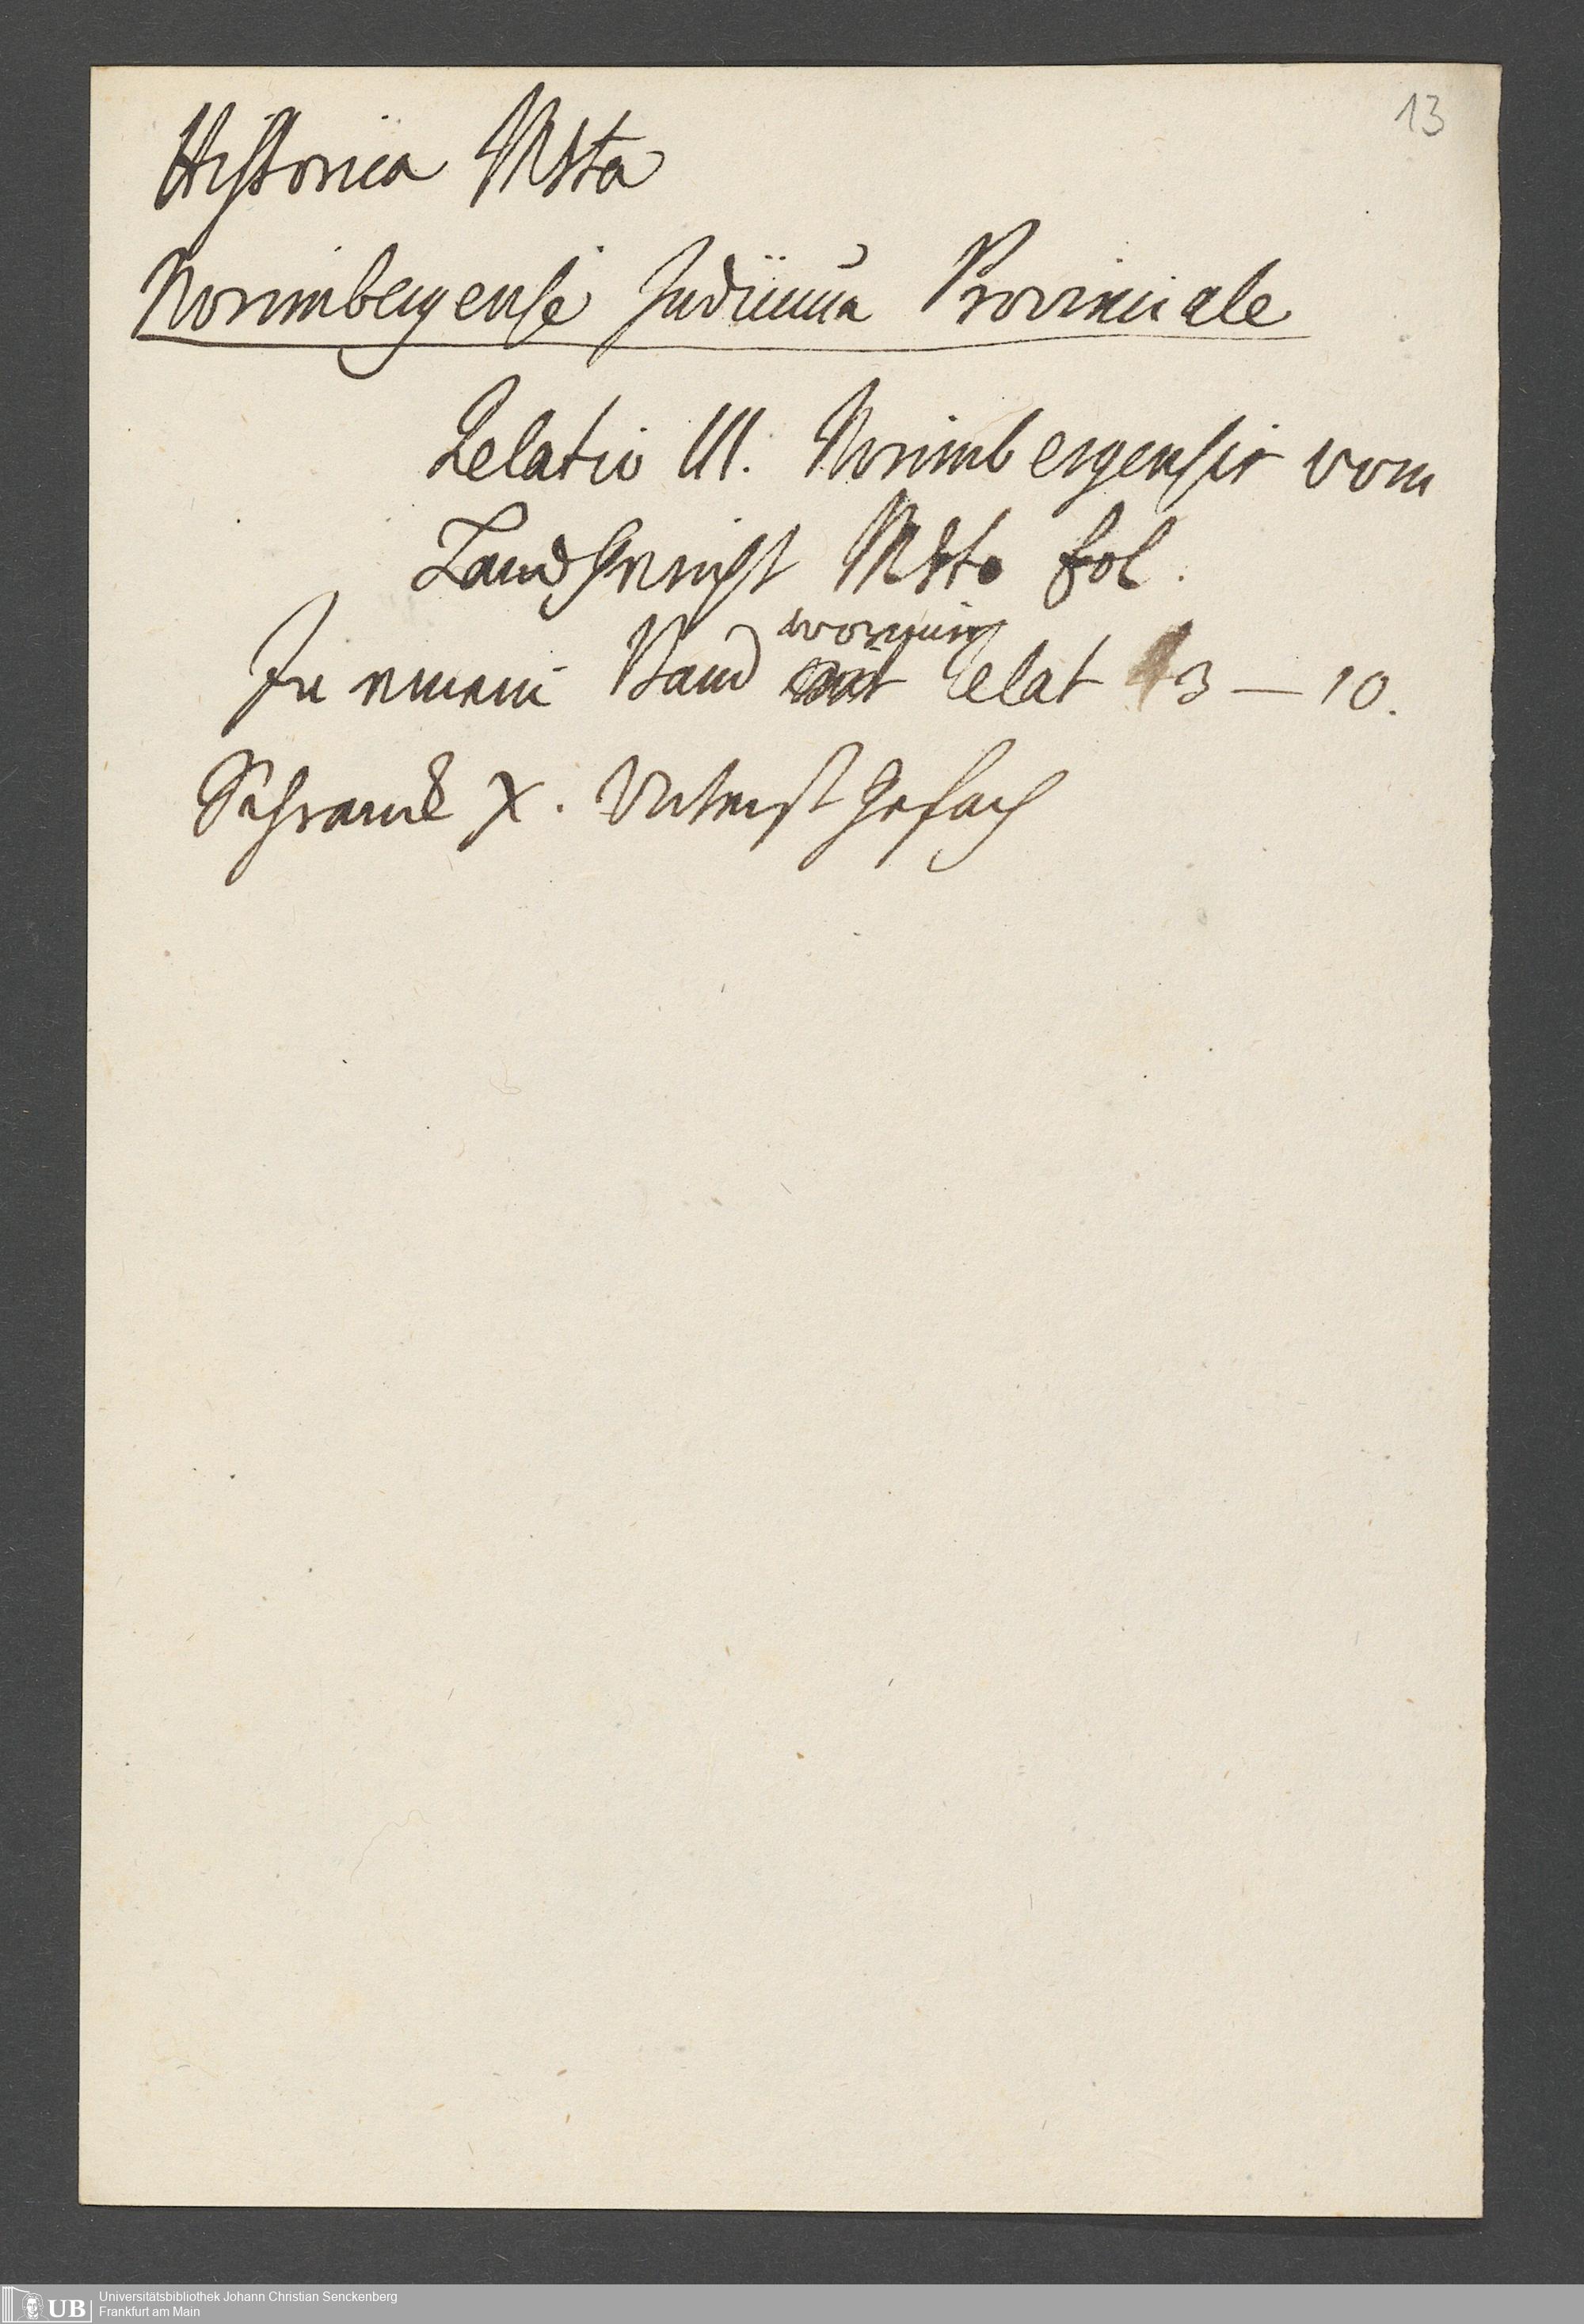 13
Historica Msta
Norimbergense Judicium Provinciale
Relatio III. Norimbergensis vom
Landgericht Msto fol.
worinnen
In einem Band mit Relat 3 — 10.
Schrank X. Unterst Gefach
UB Universitätsbibliothek Johann Christian Senckenberg
Frankfurt am Main